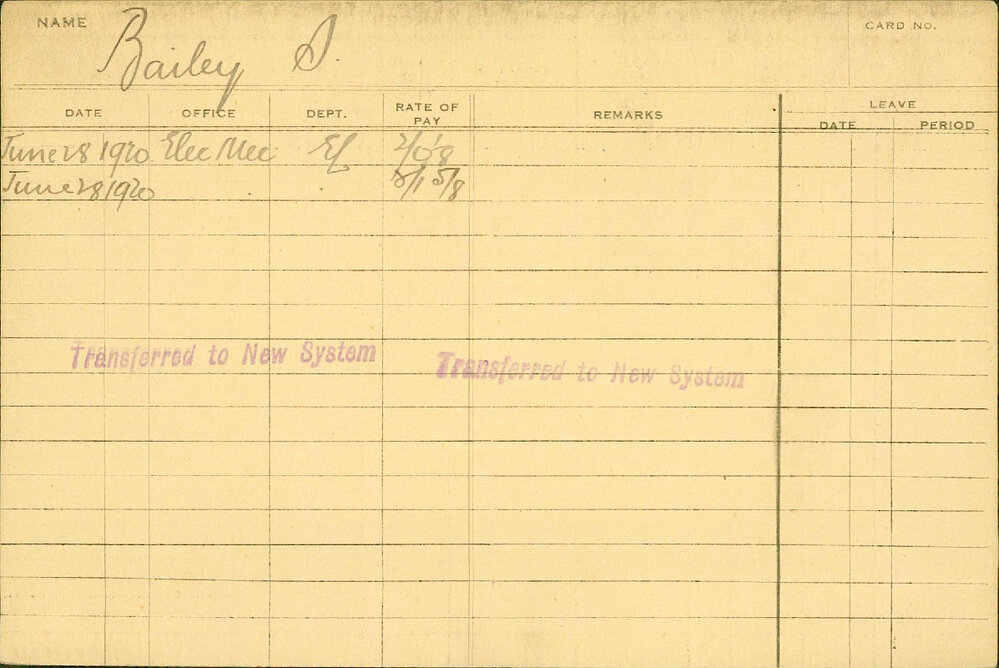 NAME Bailey S. CARD NO.
DATE OFFICE DEPT. RATE OF PAY REMARKS LEAVE
DATE PERIOD
June 28 1920 Elec Mec El
June 28 1920
Transferred to New System Transferred to New System